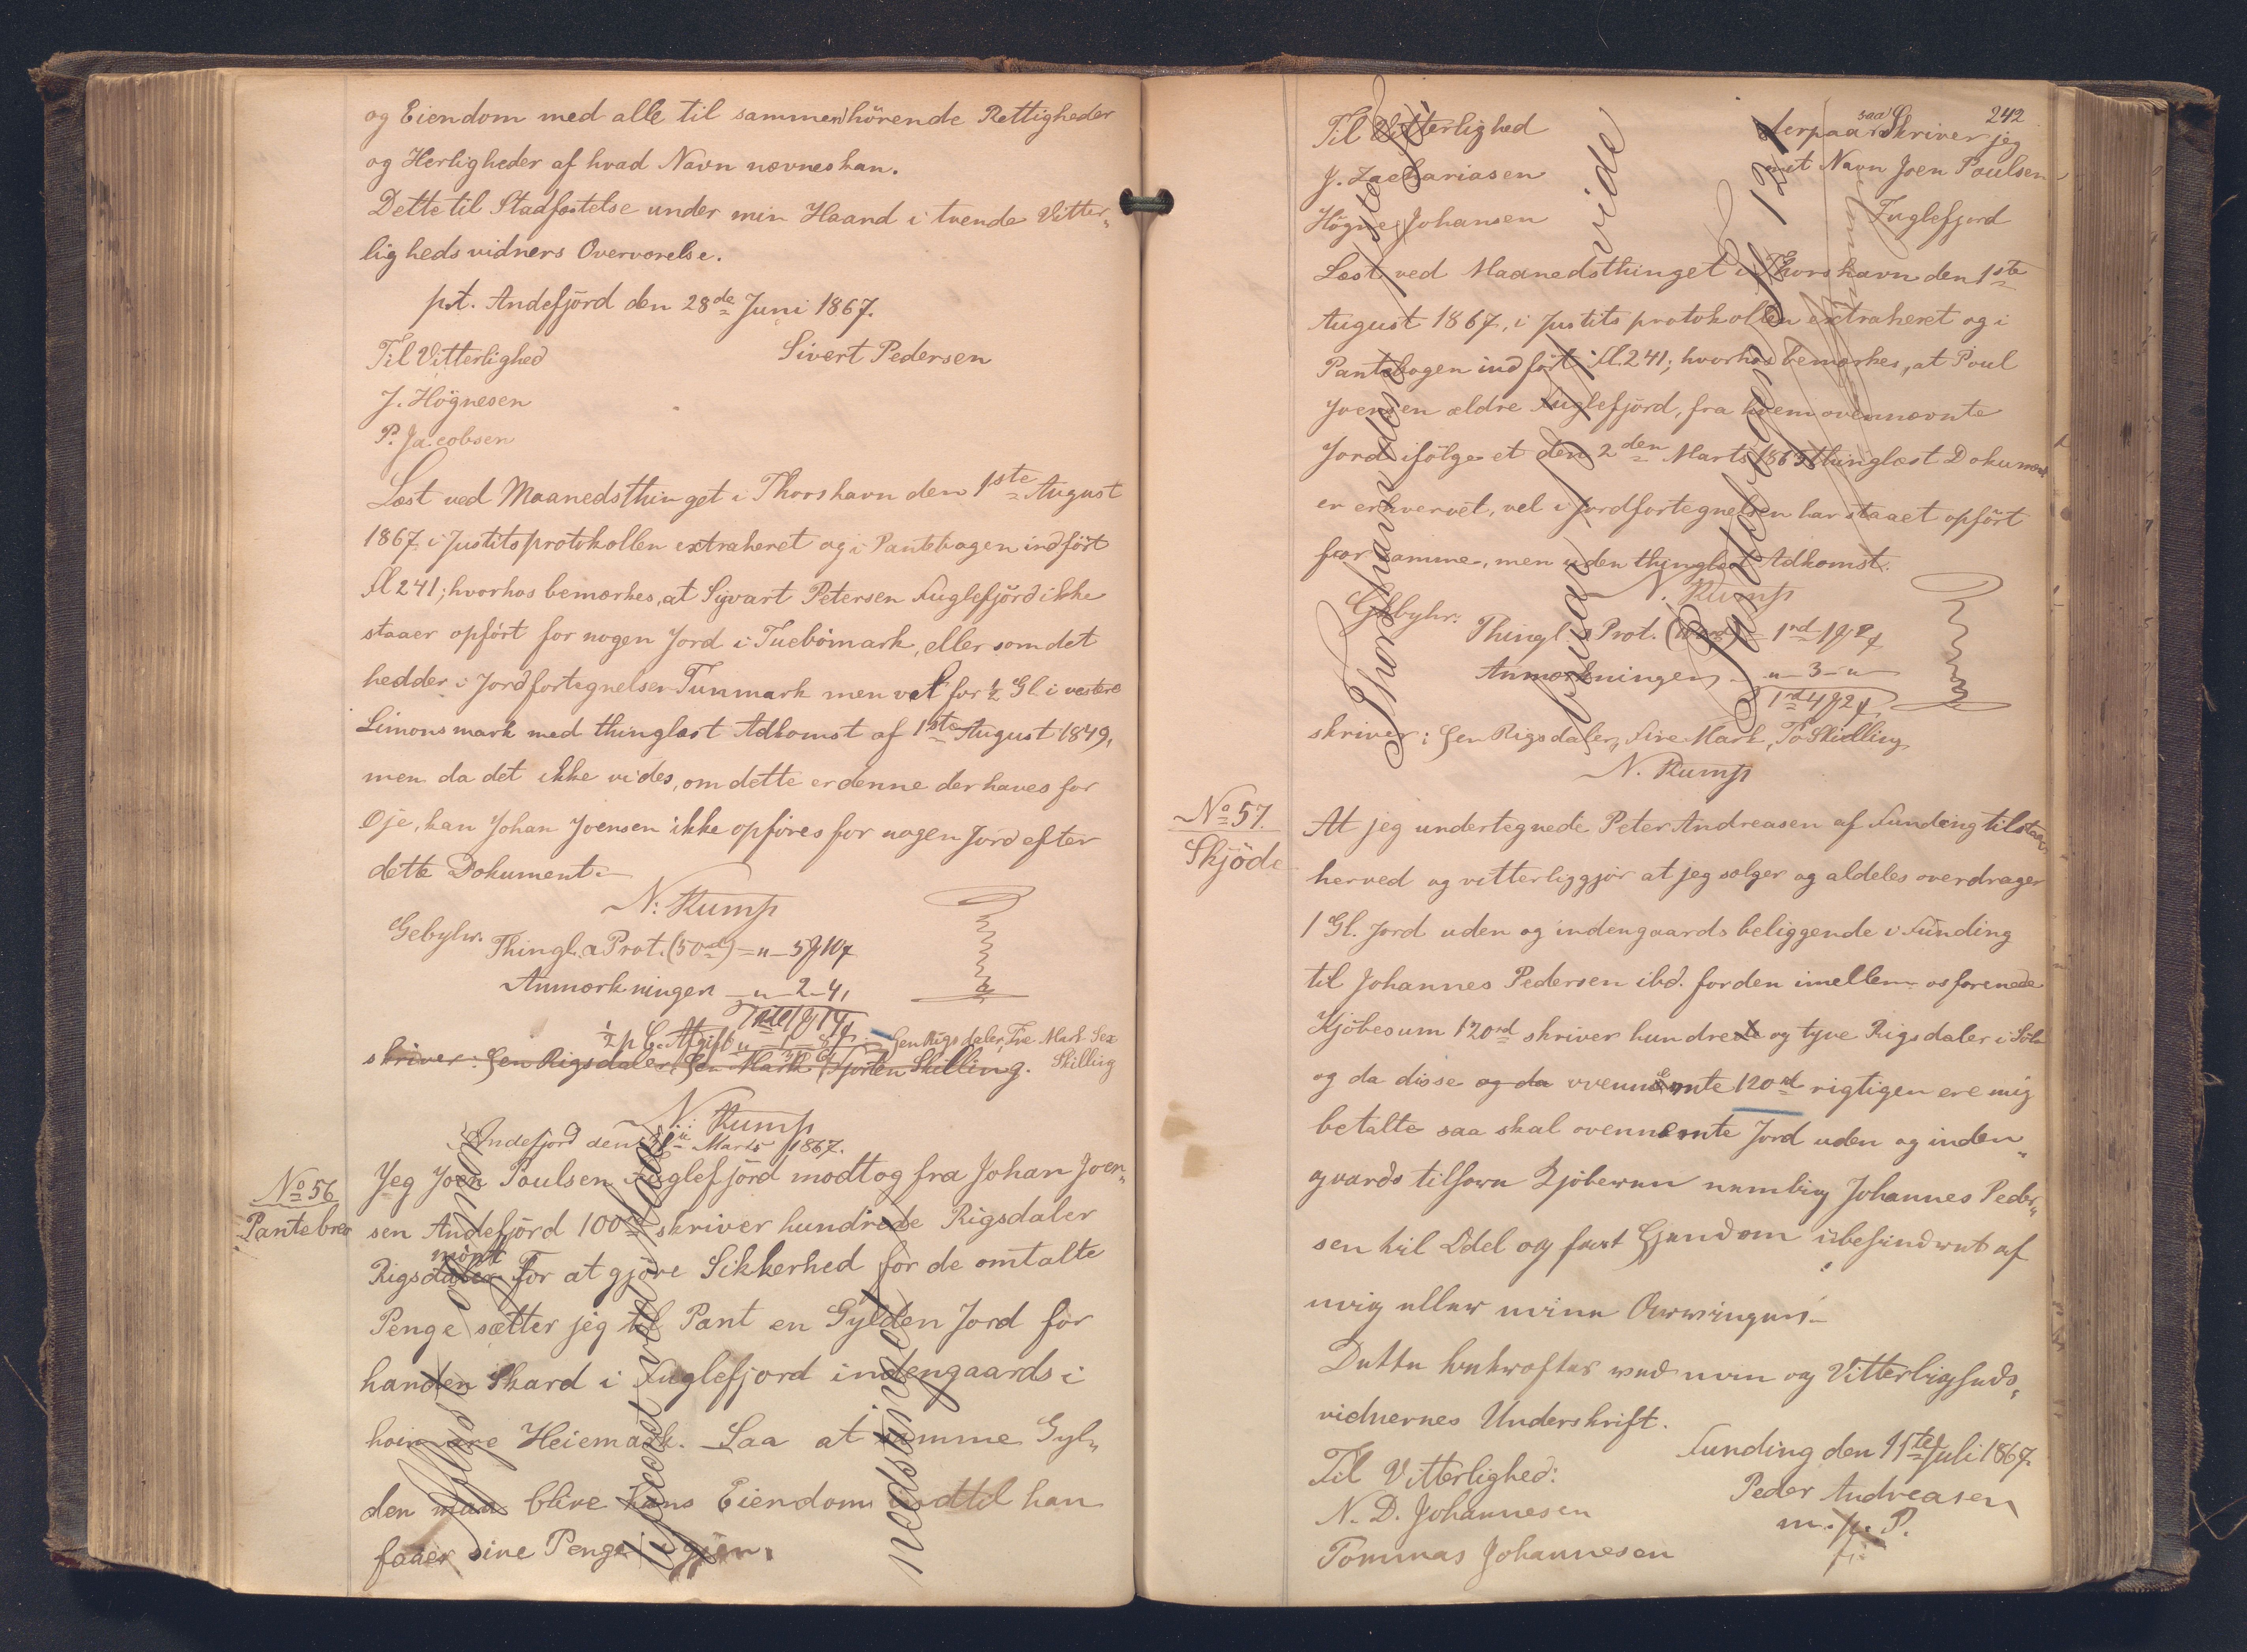 og Eiendom med alle til sammenhörende Rettigheder
og Herligheder af hvad Navn nævnes kan.
Dette til Stadfæstelse under min Haand i tvende Vitter„
ligheds vidners Overværelse.
p.t. Andefjörd den 28de Juni 1867.
Til Vitterlighed Sivert Pedersen
J. Högnesen
P. Jacobsen
Læst ved Maanedsthinget i Thorshavn den 1ste August
1867 i Justitsprotokollen extraheret og i Pantebogen indfört
fl 241; hvorhos bemærkes, at Sigvart Petersen Fuglefjörd ikke
staaer opfört for nogen Jord i Tuebömark, eller som det
hedder i Jordfortegnelsen Tunmark men vel for ½ Gl. i vestere
Simonsmark med thinglæst Adkomst af 1ste August 1849,
men da det ikke vides, om dette er denne der haves for
Øje, kan Johan Joensen ikke opföres for nogen Jord efter
dette Dokument.
N. Rump
Gebyhr. Thingl. a Prot. (50rd) = „ - 5 10
Anmærkningen - „ 2 - 4
½ p C. Afgift „ 1 8 Een Rigsdaler, Fire Mark Sex
skriver: Een Rigsdaler, Een Mark Fjorten Skilling. Skilling
N. Rump
Andefjord den Marts 1867.
No 56
Pantebrev
Jeg Joen Poulsen Fuglefjörd modtog fra Johan Joen„
sen Andefjörd 100rd skriver hundrede Rigsdaler
Rigsdaler mönt For at gjöre Sikkerhed for de omtalte
Penge sætter jeg til Pant en Gylden Jord for
handen Skard i Fuglefjord indengaards i
Heiemark. Saa at samme Gyl„
den maa blive hans Eiendom indtil han
faaer sine Penge igjen.
242
Til Vitterlighed derpaa saa Skriver jeg
J. Zachariasen mit Navn Joen Poulsen
Högne Johansen Fuglefjord
Læst ved Maanedsthinget i Thorshavn den 1ste
August 1867, i Justitsprotokollen extraheret og i
Pantebogen indfört fl. 241; hvorhos bemærkes, at Poul
Joensen ældre Fuglefjörd, fra hvem ovennævnte
Jord ifölge et den 2den Marts 1865 thinglæst Dokument
er erhvervet, vel i Jordfortegnelsen har staaet opfört
for samme, men uden thinglæst Adkomst.
N. Rump
Gebyhr:
Thingl a Prot. 1rd 1 2
Anmærkningen - „ 3 - „
1rd 4 2
skriver: Een Rigsdaler, Fire Mark, To Skilling
N. Rump
No 57.
Skjöde
At jeg undertegnede Peter Andreasen af Funding tilstaar
herved og vitterliggjör at jeg sælger og aldeles overdrager
1 Gl. Jord uden og indengaards beliggende i Funding
til Johannes Pedersen ibd. for den imellem os forenede
Kjöbesum 120rd skriver hundrede og tyve Rigsdaler i Sölv
og da disse og da ovennævnte 120rd rigtigen ere mig
betalte saa skal ovennemte Jord uden og inden„
gaards tilhöre Kjöberen nemlig Johannes Peder„
sen til Odel og fast Ejendom ubehindret af
mig eller mine Arvinger.
Dette bekræftes med min og Vitterligheds„
vidnernes Underskrift.
Funding den 15te Juli 1867.
Til Vitterlighed: Peder Andreasen
N. D. Johannesen m. f. P.
Tommas Johannesen